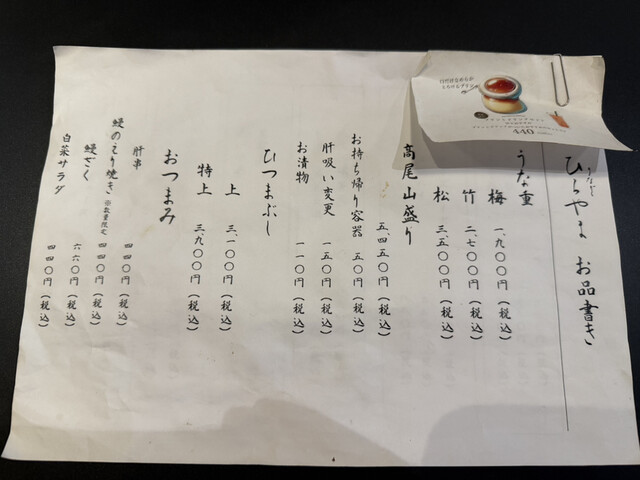 ひらやま お品書き
440
うな重
梅 一、九〇〇円（税込）
竹 二、七〇〇円（税込）
松 三、五〇〇円（税込）
高尾山盛り
五、四五〇円（税込）
お持ち帰り容器 五〇円（税込）
肝吸い変更 一五〇円（税込）
お漬物 一一〇円（税込）
ひつまぶし
上 三、一〇〇円（税込）
特上 三、九〇〇円（税込）
おつまみ
肝串 四四〇円（税込）
鰻のえり焼き ※数量限定 四四〇円（税込）
鰻ざく 六六〇円（税込）
白菜サラダ 四四〇円（税込）